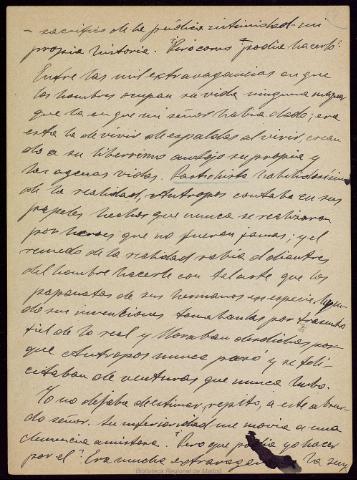 – sacrificio de la púdica intimidad mi
propia historia. Pero como podía hacerlo.
Entre las mil extravagancias en que
los hombres ocupan su vida ninguna mayor
que la en que mi señor había dado; era
esta la de vivir de espaldas al vivir, crean
do a su libérrimo antojo su propia y
las agenas vidas. habilidosísimo
de la realidad, Antropos contaba en sus
papeles hechos que nunca se realizaron
por héroes que no fueron jamás; y el
remedo de la realidad sabía el
del hombre hacerle con tal arte que los
papanatas de sus hermanos en especie,
do sus invenciones tomábanlas por trasunto
fiel de lo real y lloraban desdichas por
que Antropos nunca pasó y se feli
citaban de venturas que nunca hubo.
Yo no dejaba de estimar, repito, a este absur
do señor. Su inferioridad me movía a una
clemencia amistosa. Pero que podía yo hacer
por el? Era mucha la suy
Biblioteca Regional de Madrid